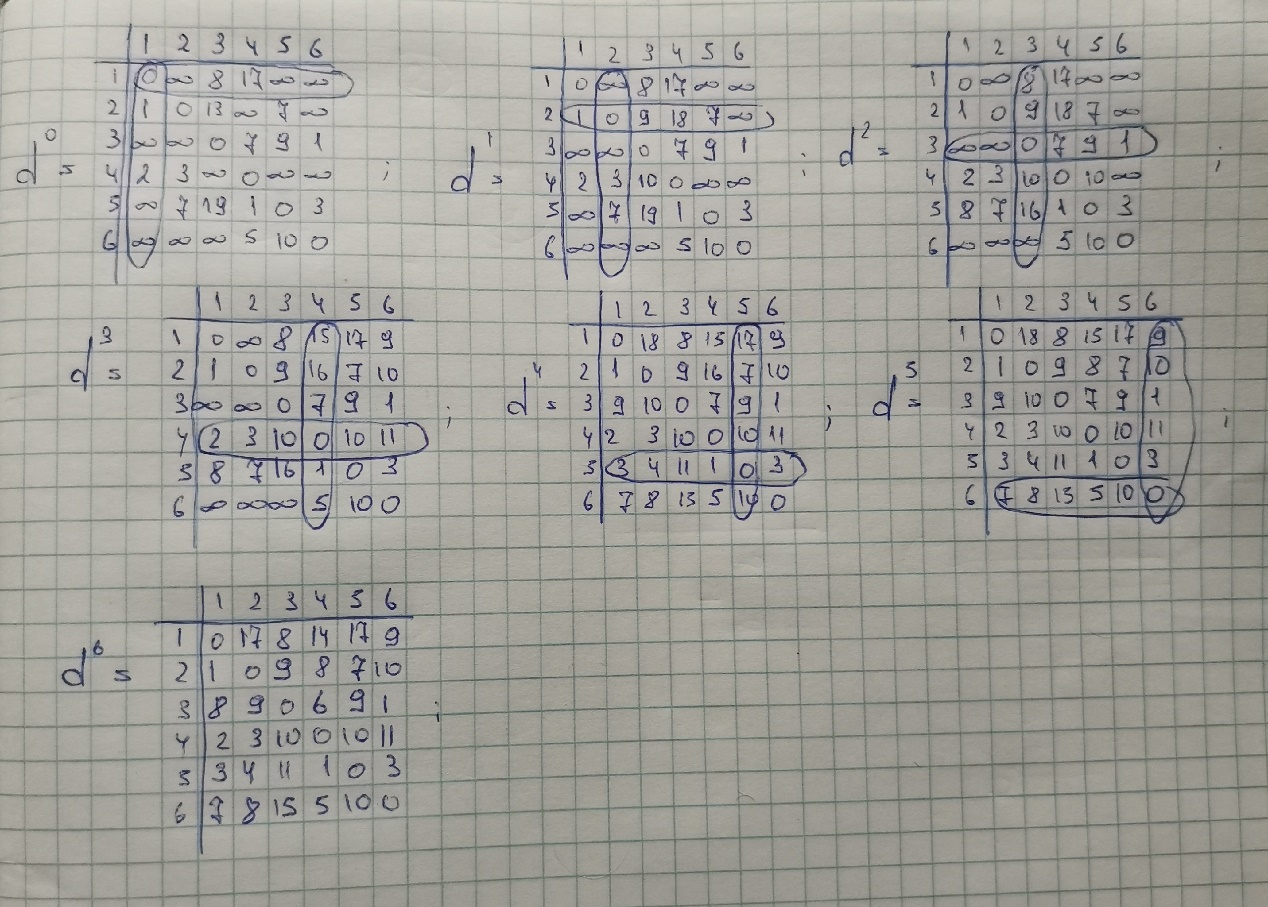 1 2 3 4 5 6
1 0 ∞ 8 17 ∞ ∞
2 1 0 13 ∞ 7 ∞
3 ∞ ∞ 0 7 9 1
4 2 3 ∞ 0 ∞ ∞
5 ∞ 7 19 1 0 3
6 ∞ ∞ ∞ 5 10 0
d⁰ = ;
1 2 3 4 5 6
1 0 ∞ 8 17 ∞ ∞
2 1 0 9 18 7 ∞
3 ∞ ∞ 0 7 9 1
4 2 3 10 0 ∞ ∞
5 ∞ 7 19 1 0 3
6 ∞ ∞ ∞ 5 10 0
d¹ = ;
1 2 3 4 5 6
1 0 ∞ 8 17 ∞ ∞
2 1 0 9 18 7 ∞
3 ∞ ∞ 0 7 9 1
4 2 3 10 0 10 ∞
5 8 7 16 1 0 3
6 ∞ ∞ ∞ 5 10 0
d² = ;
1 2 3 4 5 6
1 0 ∞ 8 15 17 9
2 1 0 9 16 7 10
3 ∞ ∞ 0 7 9 1
4 2 3 10 0 10 11
5 8 7 16 1 0 3
6 ∞ ∞ ∞ 5 10 0
d³ = ;
1 2 3 4 5 6
1 0 18 8 15 17 9
2 1 0 9 16 7 10
3 9 10 0 7 9 1
4 2 3 10 0 10 11
5 3 4 11 1 0 3
6 7 8 15 5 10 0
d⁴ = ;
1 2 3 4 5 6
1 0 18 8 15 17 9
2 1 0 9 8 7 10
3 9 10 0 7 9 1
4 2 3 10 0 10 11
5 3 4 11 1 0 3
6 7 8 15 5 10 0
d⁵ = ;
1 2 3 4 5 6
1 0 17 8 14 17 9
2 1 0 9 8 7 10
3 8 9 0 6 9 1
4 2 3 10 0 10 11
5 3 4 11 1 0 3
6 7 8 15 5 10 0
d⁶ = ;